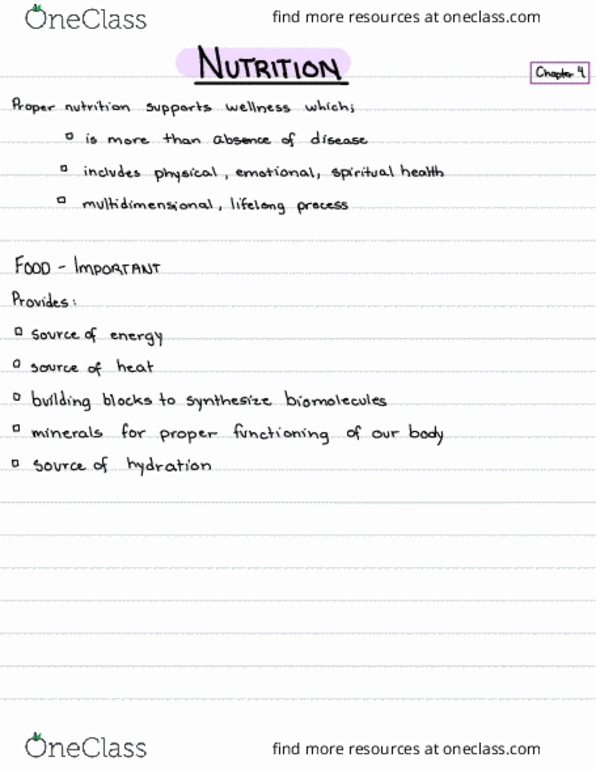 OneClass find more resources at oneclass.com
NUTRITION
Chapter 4
Proper nutrition supports wellness which;
is more than absence of disease
includes physical, emotional, spiritual health
multidimensional, lifelong process
FOOD - IMPORTANT
Provides:
source of energy
source of heat
building blocks to synthesize biomolecules
minerals for proper functioning of our body
source of hydration
OneClass find more resources at oneclass.com